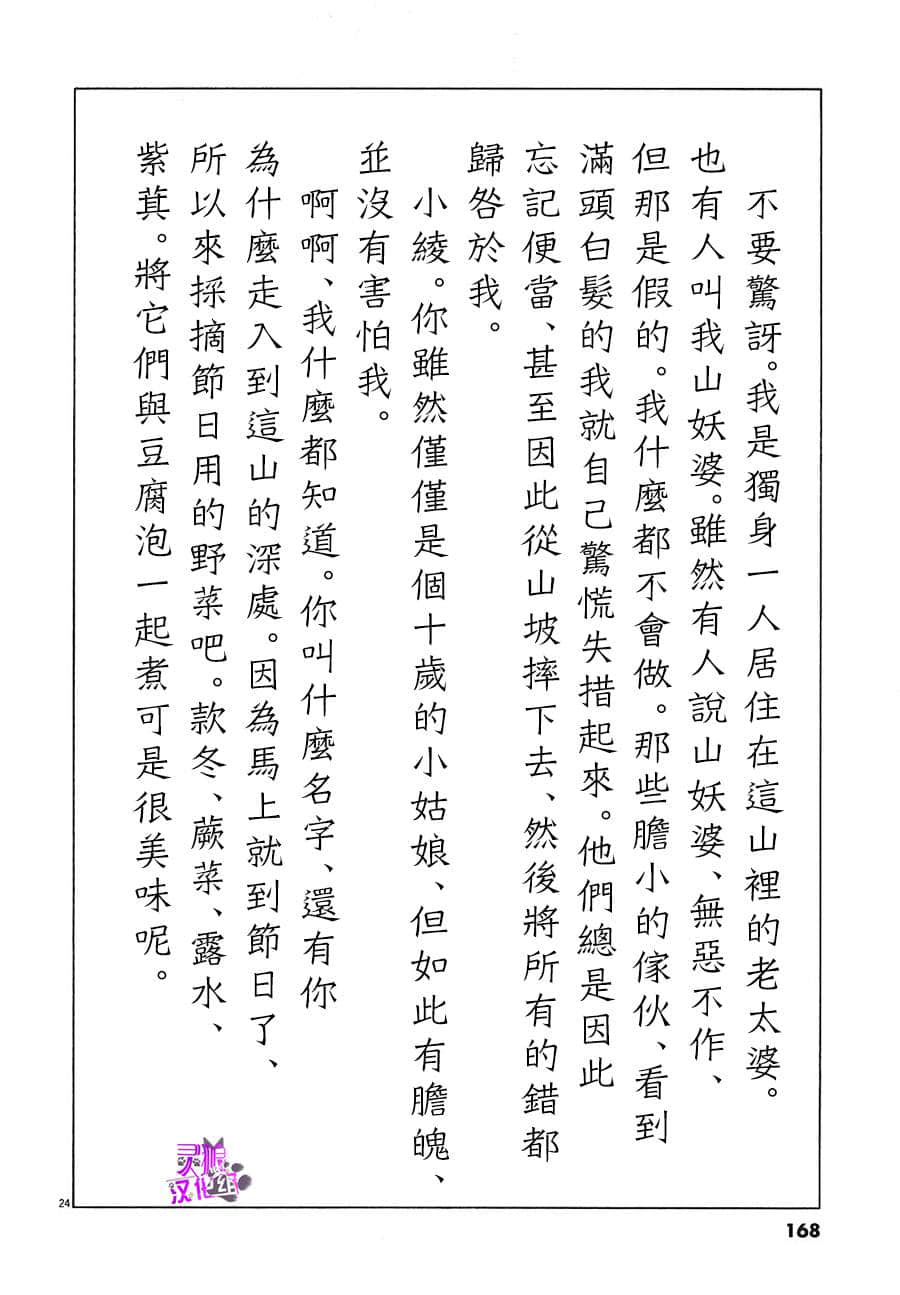 不要驚訝。我是獨身一人居住在這山裡的老太婆。
也有人叫我山妖婆。雖然有人說山妖婆、無惡不作、
但那是假的。我什麼都不會做。那些膽小的傢伙、看到
滿頭白髮的我就自己驚慌失措起來。他們總是因此
忘記便當、甚至因此從山坡摔下去、然後將所有的錯都
歸咎於我。
小綾。你雖然僅僅是個十歲的小姑娘、但如此有膽魄、
並沒有害怕我。
啊啊、我什麼都知道。你叫什麼名字、還有你
為什麼走入到這山的深處。因為馬上就到節日了、
所以來採摘節日用的野菜吧。款冬、蕨菜、露水、
紫萁。將它們與豆腐泡一起煮可是很美味呢。
灵狼
汉化组
24
168